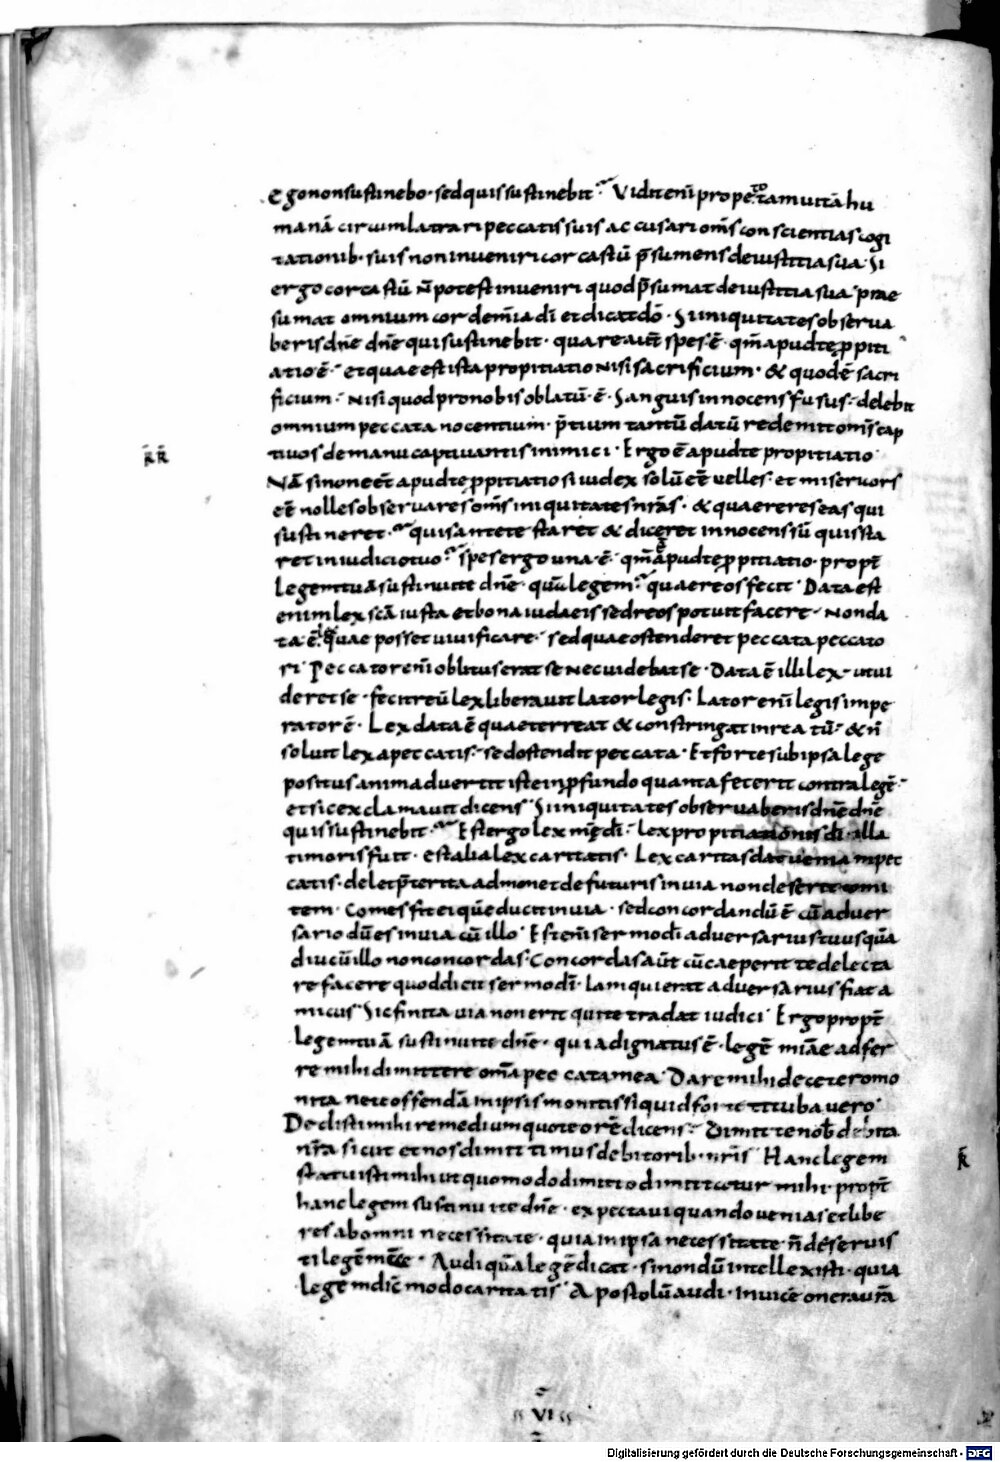 Ego non sustinebo · sed quis sustinebit · Vidit enī prope totam uitā hu
manā circumlatrari peccatis suis accusari om̄s conscientias cogi
tationib · suis non inueniri cor castū p̄sumens de iustitia sua · Si
ergo cor castū n̄ potest inueniri quod p̄sumat de iustitia sua · prae
sumat omnium cor de mīa dī et dicat dō · Si iniquitates obserua
beris dn̄e dn̄e qui sustinebit · quare aut̄ spes · ē · qm̄ apud te ꝓpiti
atio ē · et quae est ista propitiatio nisi sacrificium · & quod ē sacri
ficium · nisi quod pro nobis oblatū · ē · Sanguis innocens fusus · delebit
omnium peccata nocentium · p̄tium tantū datū redemit om̄s cap
tiuos de manu captiuantis inimici · Ergo ē apud te propitiatio
R̄R̄
Nā si non eēt apud te ꝓpitiatio si iudex solū eē uelles · et misericors
eē nolles obseruares om̄s iniquitates nr̄as · & quaereres eas qui
sustineret · quis ante te staret & diceret innocens sū quis sta
ret in iudicio tuo · Spes ergo una · ē · qm̄ apud te ꝓpitiatio · propt̄
legem tuā sustinui te dn̄e · quā legem · quae reos fecit · Data est
enim lex scā iusta et bona iudaeis sed reos potuit facere · Non da
ta · ē · lex quae posset uiuificare · sed quae ostenderet peccata peccato
ri · Peccator enī oblitus erat se nec uidebat se · Data ē illi lex · ut ui
deret se · fecit reū lex liberauit lator legis · Lator enī legis impe
rator ē · Lex data ē quae terreat & constringat in reatū · & n̄
soluit lex a peccatis · sed ostendit peccata · Et forte sub ipsa lege
positus animaduertit iste in ꝓfundo quanta fecerit contra legē ·
et sic exclamauit dicens · Si iniquitates obseruaberis dn̄e dn̄e
quis sustinebit · Est ergo lex mīę dī · lex propitiationis dī · illa
timoris fuit · est alia lex caritatis · Lex caritas dat uenia in pec
catis · delet p̄terita admonet de futuris in uia non deserit comi
tem · comes fit ei quē ducit in uia · sed concordandū ē cū aduer
sario dū es in uia cū illo · Est enī sermo dī aduersarius tuus quā
diu cū illo non concordas · Concordas aut̄ cū caeperit te delecta
re facere quod dicit sermo dī · Iam qui erat aduersarius fiat a
micus · Sic finita uia non erit qui te tradat iudici · Ergo propt̄
legem tuā sustinui te dn̄e · quia dignatus ē · legē mīae adfer
re mihi dimittere om̄a peccata mea · Dare mihi de cetero mo
nita ne te offendā in ipsis monitis si quid forte titubauero
Dedisti mihi remedium quo te orē dicens · Dimitte nob̄ debita
nr̄a sicut et nos dimittimus debitorib · nr̄is · Hanc legem
R̄
statuisti mihi ut quomodo dimitto dimittetur mihi · propt̄
hanc legem sustinui te dn̄e · expectaui quando uenias et libe
res ab omni necessitate · quia in ipsa necessitate n̄ deseruis
ti legē mīę · Audi quā legē dicat · si nondū intellexisti · quia
legem dic̄ modo caritatis · Apostolū audi · Inuicē onera ur̄a
VI
Digitalisierung gefördert durch die Deutsche Forschungsgemeinschaft · DFG